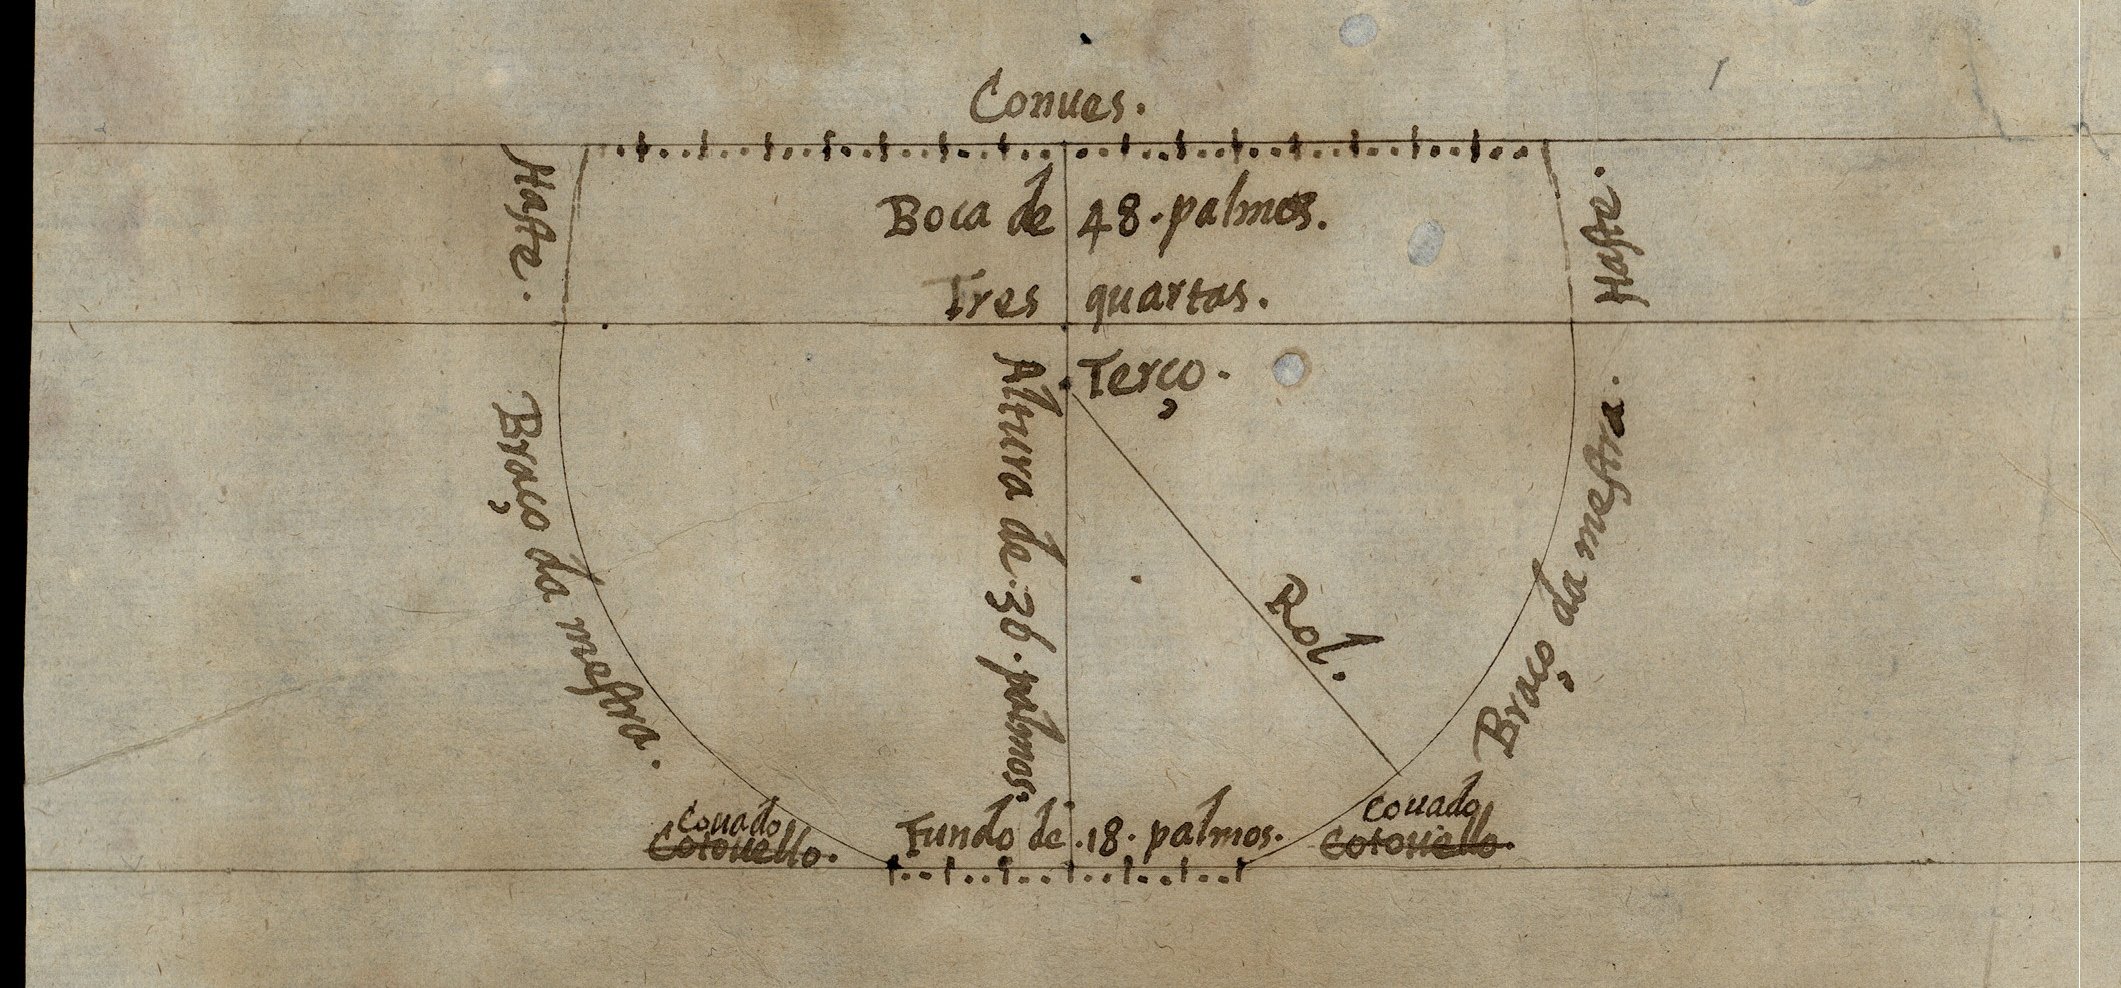 Conues.
Haste.
Boca de 48. palmos.
Haste.
Tres quartas.
Terço.
Altura de. 36. palmos.
Braço da mestra.
Rol.
Braço da mestra.
Couado
Cotouello.
Fundo de. 18. palmos.
Couado
Cotouello.